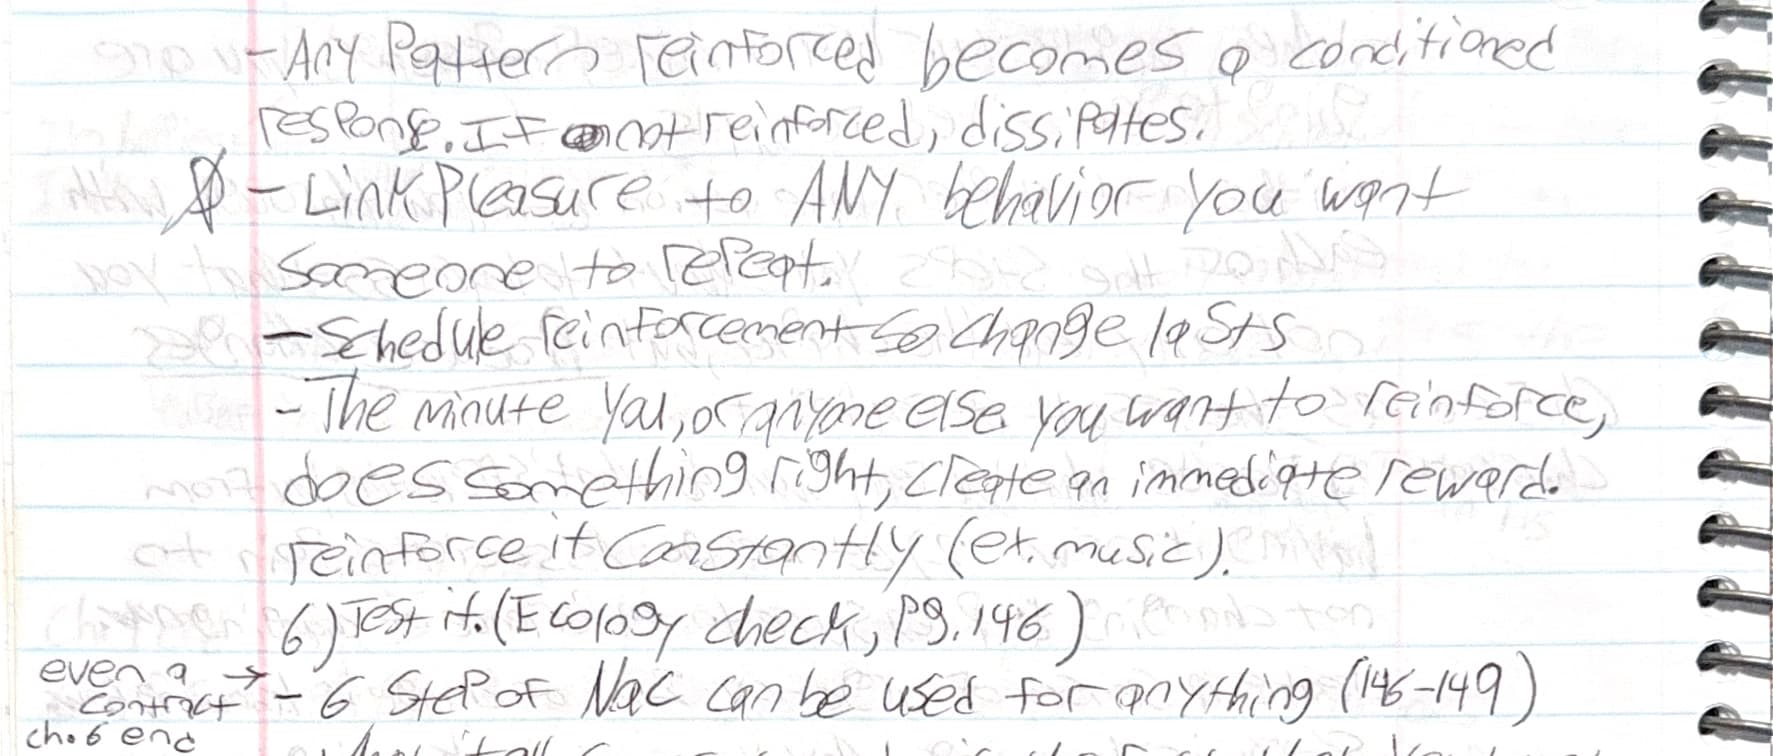 - Any Pattern reinforced becomes a conditioned
response. If not reinforced, dissipates.
- Link Pleasure to ANY behavior you want
someone to repeat.
- Schedule reinforcement so change lasts
- The minute you, or anyone else you want to reinforce,
does something right, create an immediate reward.
reinforce it constantly (ex. music).
6) Test it. (Ecology check, Pg. 146)
even a →
contract
- 6 Step of Nac can be used for anything (146-149)
ch. 6 end